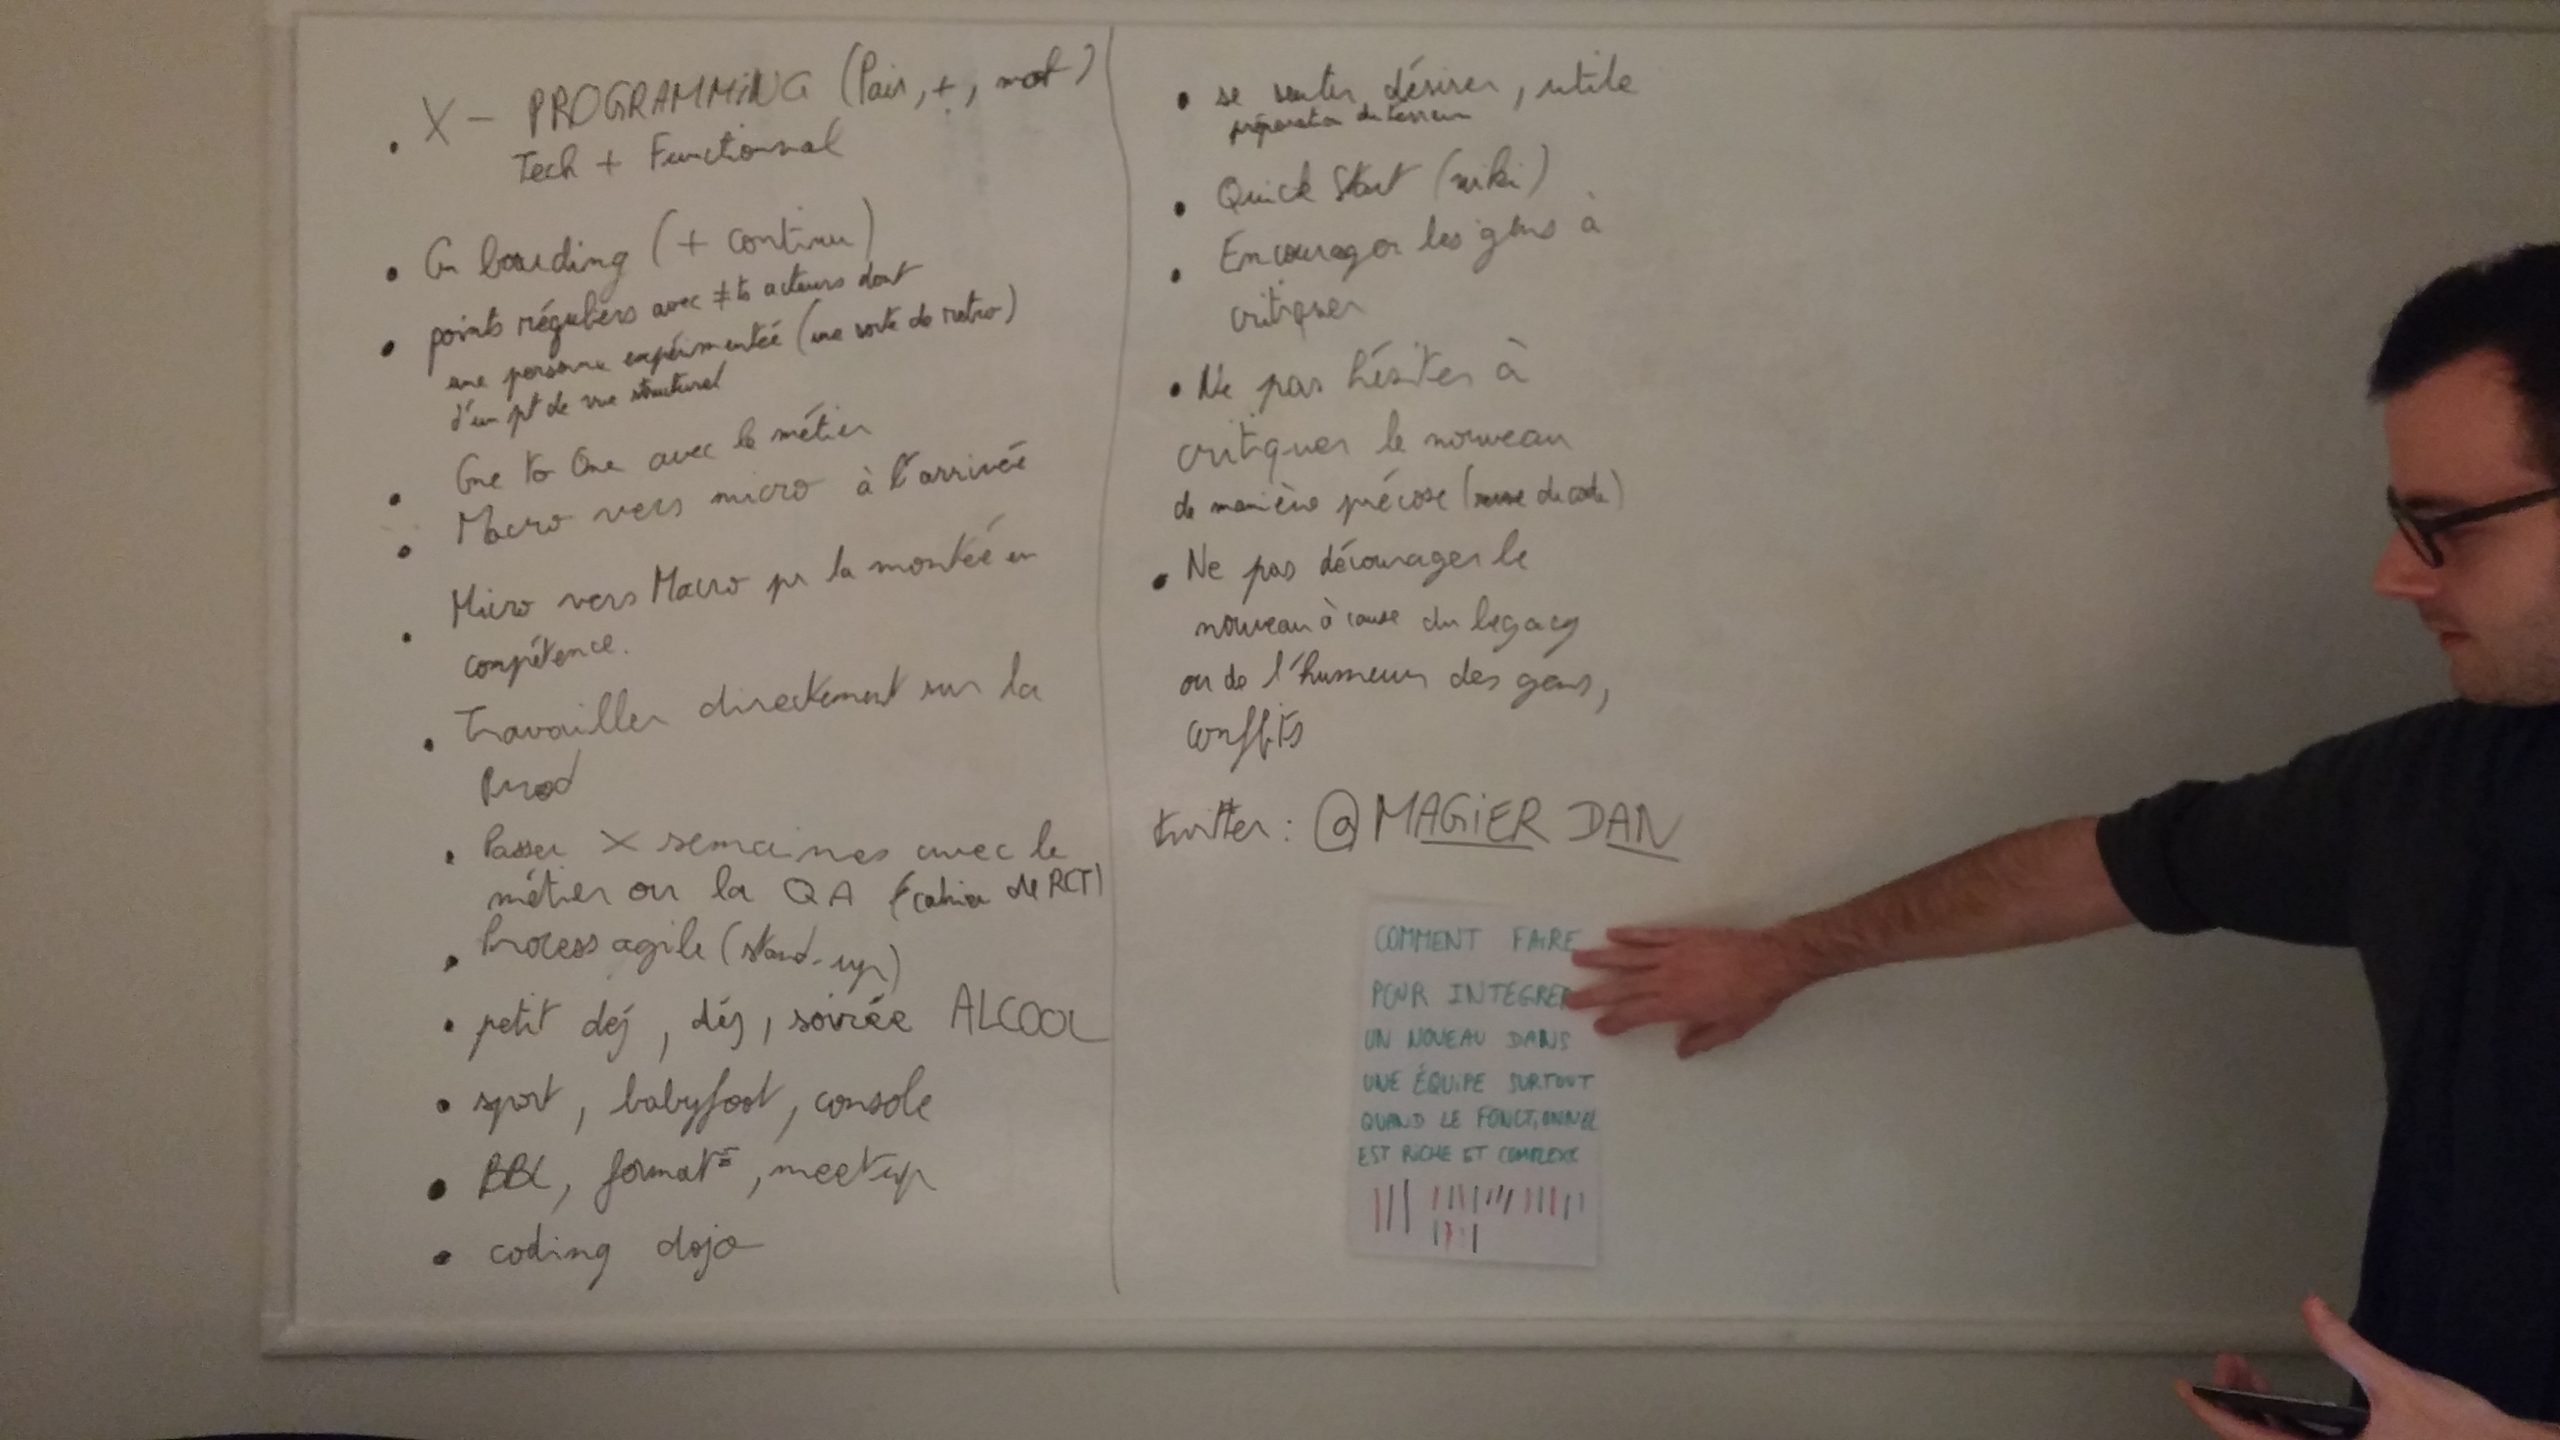 • X - PROGRAMMING (Pair, +, mob)
Tech + Functionnal
• On boarding (+ continu)
• points réguliers avec ≠ts acteurs dont
une personne expérimentée (une sorte de retro)
d'un pt de vue structurel
• One to One avec le métier
• Macro vers micro à l'arrivée
• Micro vers Macro pr la montée en
compétence.
• Travailler directement sur la
Prod
• Passer X semaines avec le
métier ou la QA (cahier de RCT)
• Process agile (stand-up)
• petit déj, déj, soirée ALCOOL
• sport, babyfoot, console
• BBL, format°, meetup
• coding dojo
• se sentir désirer, utile
préparation du terrain
• Quick Start (wiki)
• Encourager les gens à
critiquer
• Ne pas hésiter à
critiquer le nouveau
de manière précose (revue de code)
• Ne pas décourager le
nouveau à cause du legacy
ou de l'humeur des gens,
conflits
twitter : @MAGIER DAN
COMMENT FAIRE
POUR INTEGRER
UN NOVEAU DANS
UNE ÉQUIPE SURTOUT
QUAND LE FONCTIONNEL
EST RICHE ET COMPLEXE